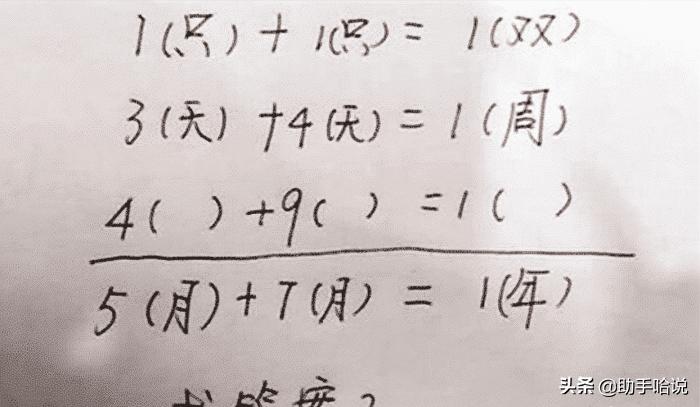 1(只)+1(只)=1(双)
3(天)+4(天)=1(周)
4( )+9( )=1( )
5(月)+7(月)=1(年)
头条 @助手哈说